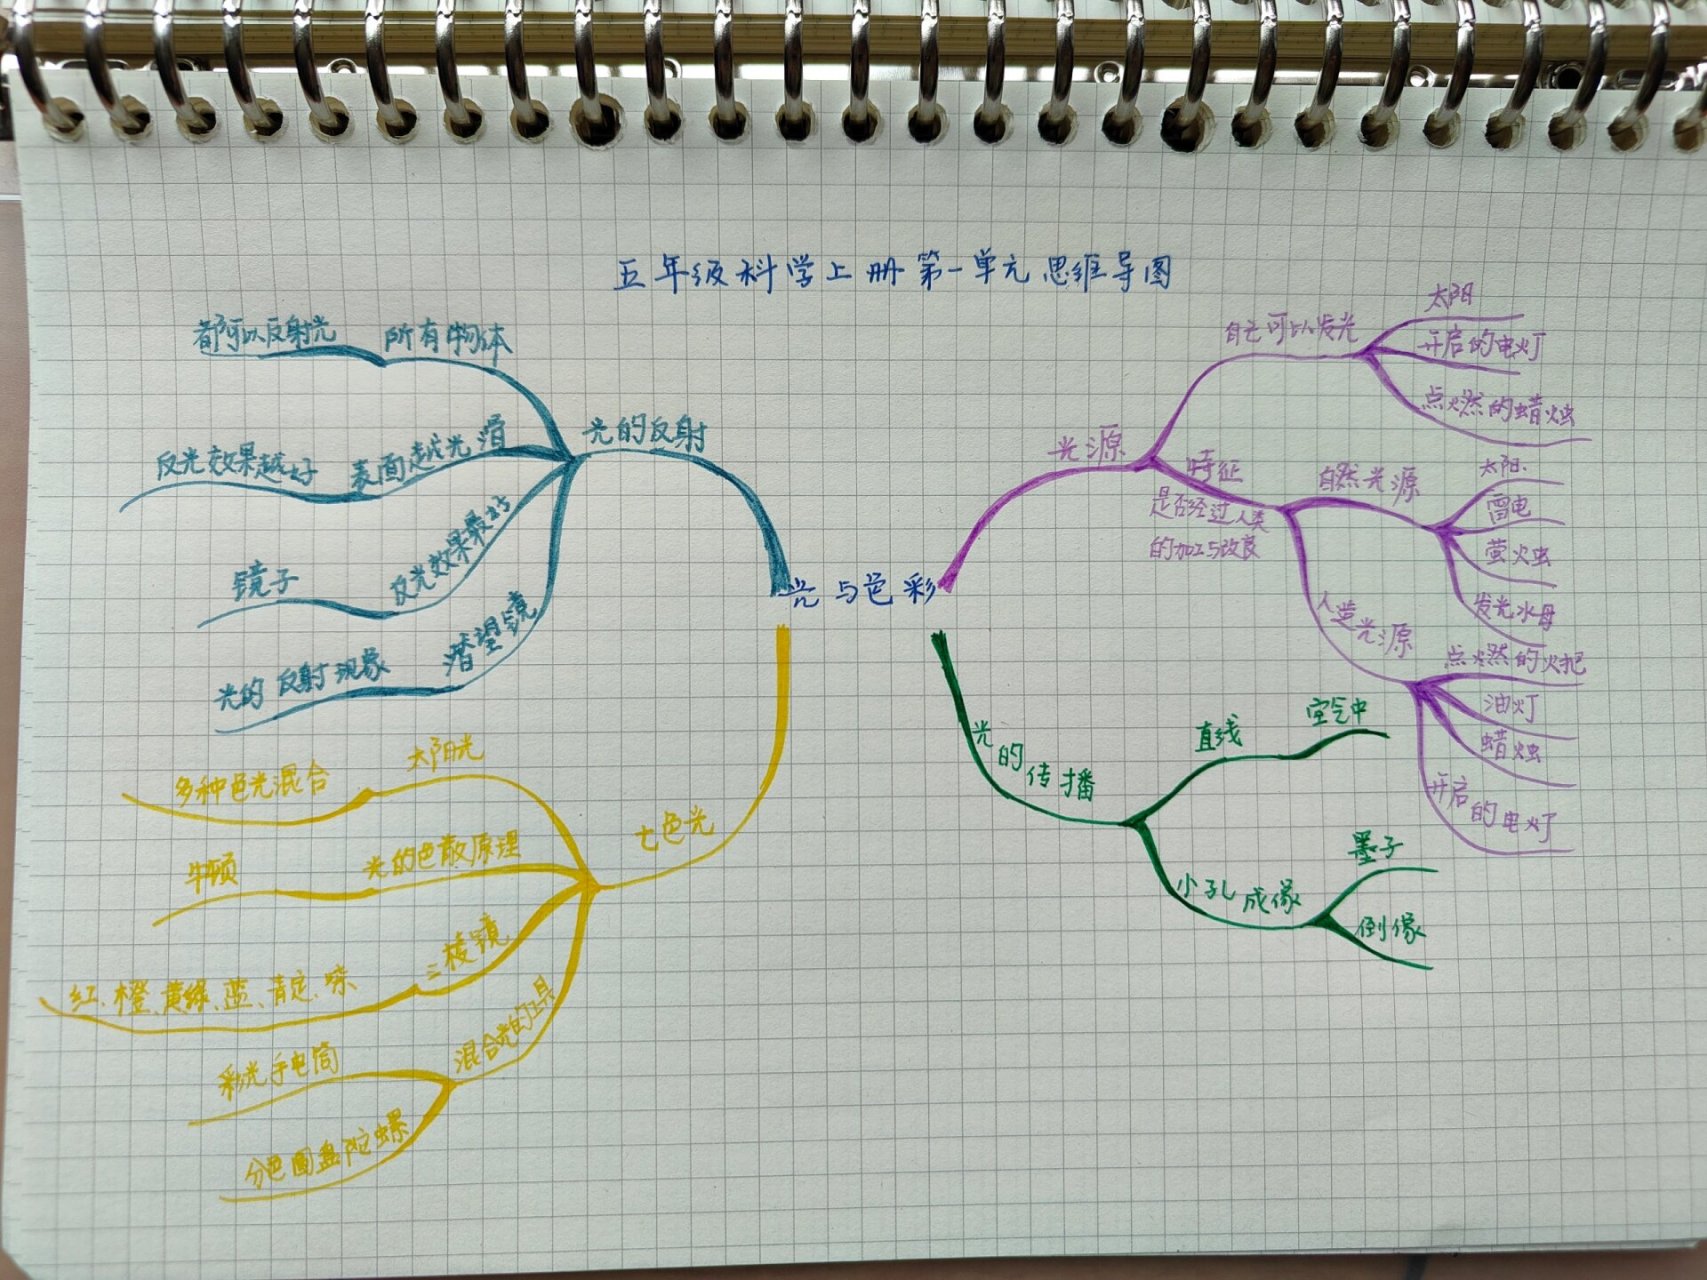 五年级科学上册第一单元思维导图
光与色彩
光的反射
所有物体
都可以反射光
表面越光滑
反光效果越好
反光效果最好
镜子
潜望镜
光的反射现象
七色光
太阳光
多种色光混合
光的色散原理
牛顿
三棱镜
红、橙、黄绿、蓝、青定、
混合光的工具
彩光手电筒
分色圆盘陀螺
光源
自己可以发光
太阳
开启的电灯
点燃的蜡烛
特征
是否经过人类
的加工与改良
自然光源
太阳、
雷电
萤火虫
发光水母
人造光源
点燃的火把
油灯
蜡烛
开启的电灯
光的传播
直线
空气中
小孔成像
墨子
倒像